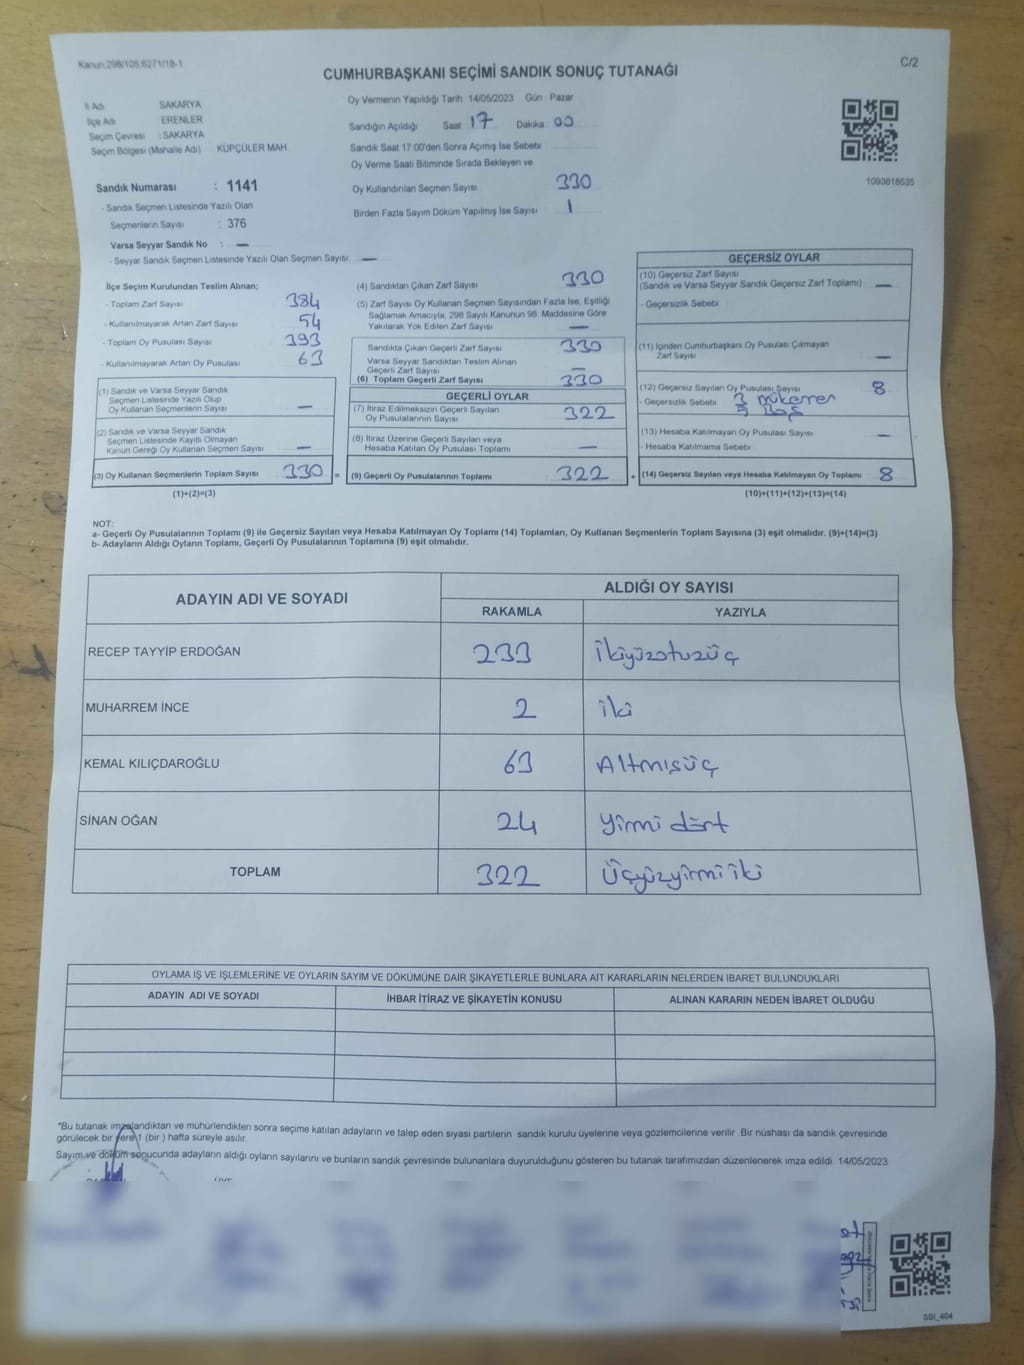 Kanun.298/105,6271/18-1
C/2
CUMHURBAŞKANI SEÇİMİ SANDIK SONUÇ TUTANAĞI
İl Adı SAKARYA
İlçe Adı ERENLER
Seçim Çevresi : SAKARYA
Seçim Bölgesi (Mahalle Adı) KÜPÇÜLER MAH
Sandık Numarası : 1141
- Sandık Seçmen Listesinde Yazılı Olan
Seçmenlerin Sayısı : 376
Varsa Seyyar Sandık No : —
- Seyyar Sandık Seçmen Listesinde Yazılı Olan Seçmen Sayısı: —
Oy Vermenin Yapıldığı Tarih :14/05/2023 Gün : Pazar
Sandığın Açıldığı Saat 17 Dakika 00
Sandık Saat 17:00'den Sonra Açılmış İse Sebebi
Oy Verme Saati Bitiminde Sırada Bekleyen ve
Oy Kullandırılan Seçmen Sayısı 330
Birden Fazla Sayım Döküm Yapılmış İse Sayısı : 1
1093818535
İlçe Seçim Kurulundan Teslim Alınan;
- Toplam Zarf Sayısı 384
- Kullanılmayarak Artan Zarf Sayısı 54
- Toplam Oy Pusulası Sayısı 393
- Kullanılmayarak Artan Oy Pusulası 63
(1) Sandık ve Varsa Seyyar Sandık
Seçmen Listesinde Yazılı Olup
Oy Kullanan Seçmenlerin Sayısı —
(2) Sandık ve Varsa Seyyar Sandık
Seçmen Listesinde Kayıtlı Olmayan
Kanun Gereği Oy Kullanan Seçmen Sayısı —
(3) Oy Kullanan Seçmenlerin Toplam Sayısı 330 =
(1)+(2)=(3)
(4) Sandıktan Çıkan Zarf Sayısı 330
(5) Zarf Sayısı Oy Kullanan Seçmen Sayısından Fazla İse, Eşitliği
Sağlamak Amacıyla, 298 Sayılı Kanunun 98. Maddesine Göre
Yakılarak Yok Edilen Zarf Sayısı —
Sandıkta Çıkan Geçerli Zarf Sayısı 330
Varsa Seyyar Sandıktan Teslim Alınan
Geçerli Zarf Sayısı —
(6) Toplam Geçerli Zarf Sayısı 330
GEÇERLİ OYLAR
(7) İtiraz Edilmeksizin Geçerli Sayılan
Oy Pusulalarının Sayısı 322
(8) İtiraz Üzerine Geçerli Sayılan veya
Hesaba Katılan Oy Pusulası Toplamı —
(9) Geçerli Oy Pusulalarının Toplamı 322 +
GEÇERSİZ OYLAR
(10) Geçersiz Zarf Sayısı
(Sandık ve Varsa Seyyar Sandık Geçersiz Zarf Toplamı) —
- Geçersizlik Sebebi
(11) İçinden Cumhurbaşkanı Oy Pusulası Çıkmayan
Zarf Sayısı —
(12) Geçersiz Sayılan Oy Pusulası Sayısı 8
- Geçersizlik Sebebi 3 mükerrer
5 Boş
(13) Hesaba Katılmayan Oy Pusulası Sayısı —
- Hesaba Katılmama Sebebi
(14) Geçersiz Sayılan veya Hesaba Katılmayan Oy Toplamı 8
(10)+(11)+(12)+(13)=(14)
NOT:
a- Geçerli Oy Pusulalarının Toplamı (9) ile Geçersiz Sayılan veya Hesaba Katılmayan Oy Toplamı (14) Toplamları, Oy Kullanan Seçmenlerin Toplam Sayısına (3) eşit olmalıdır. (9)+(14)=(3)
b- Adayların Aldığı Oyların Toplamı, Geçerli Oy Pusulalarının Toplamına (9) eşit olmalıdır.
ADAYIN ADI VE SOYADI
ALDIĞI OY SAYISI
RAKAMLA YAZIYLA
RECEP TAYYİP ERDOĞAN 233 İkiyüzotuzüç
MUHARREM İNCE 2 İki
KEMAL KILIÇDAROĞLU 63 Altmışüç
SİNAN OĞAN 24 Yirmi dört
TOPLAM 322 Üçyüzyirmi iki
OYLAMA İŞ VE İŞLEMLERİNE VE OYLARIN SAYIM VE DÖKÜMÜNE DAİR ŞİKAYETLERLE BUNLARA AİT KARARLARIN NELERDEN İBARET BULUNDUKLARI
ADAYIN ADI VE SOYADI İHBAR İTİRAZ VE ŞİKAYETİN KONUSU ALINAN KARARIN NEDEN İBARET OLDUĞU
*Bu tutanak imzalandıktan ve mühürlendikten sonra seçime katılan adayların ve talep eden siyasi partilerin sandık kurulu üyelerine veya gözlemcilerine verilir .Bir nüshası da sandık çevresinde
görülecek bir yere 1 (bir ) hafta süreyle asılır.
Sayım ve döküm sonucunda adayların aldığı oyların sayılarını ve bunların sandık çevresinde bulunanlara duyurulduğunu gösteren bu tutanak tarafımızdan düzenlenerek imza edildi. 14/05/2023
SSI_404